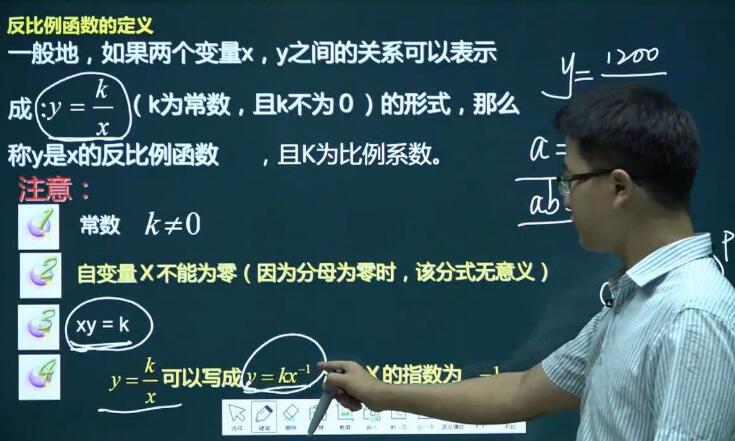 反比例函数的定义
一般地，如果两个变量x，y之间的关系可以表示
成:y = k/x（k为常数，且k不为０）的形式，那么
称y是x的反比例函数 ，且K为比例系数。
注意：
1 常数 k≠0
2 自变量Ｘ不能为零（因为分母为零时，该分式无意义）
3 xy = k
4 y = k/x 可以写成 y = kx⁻¹ X的指数为 −1
y = 1200
a =
ab
P